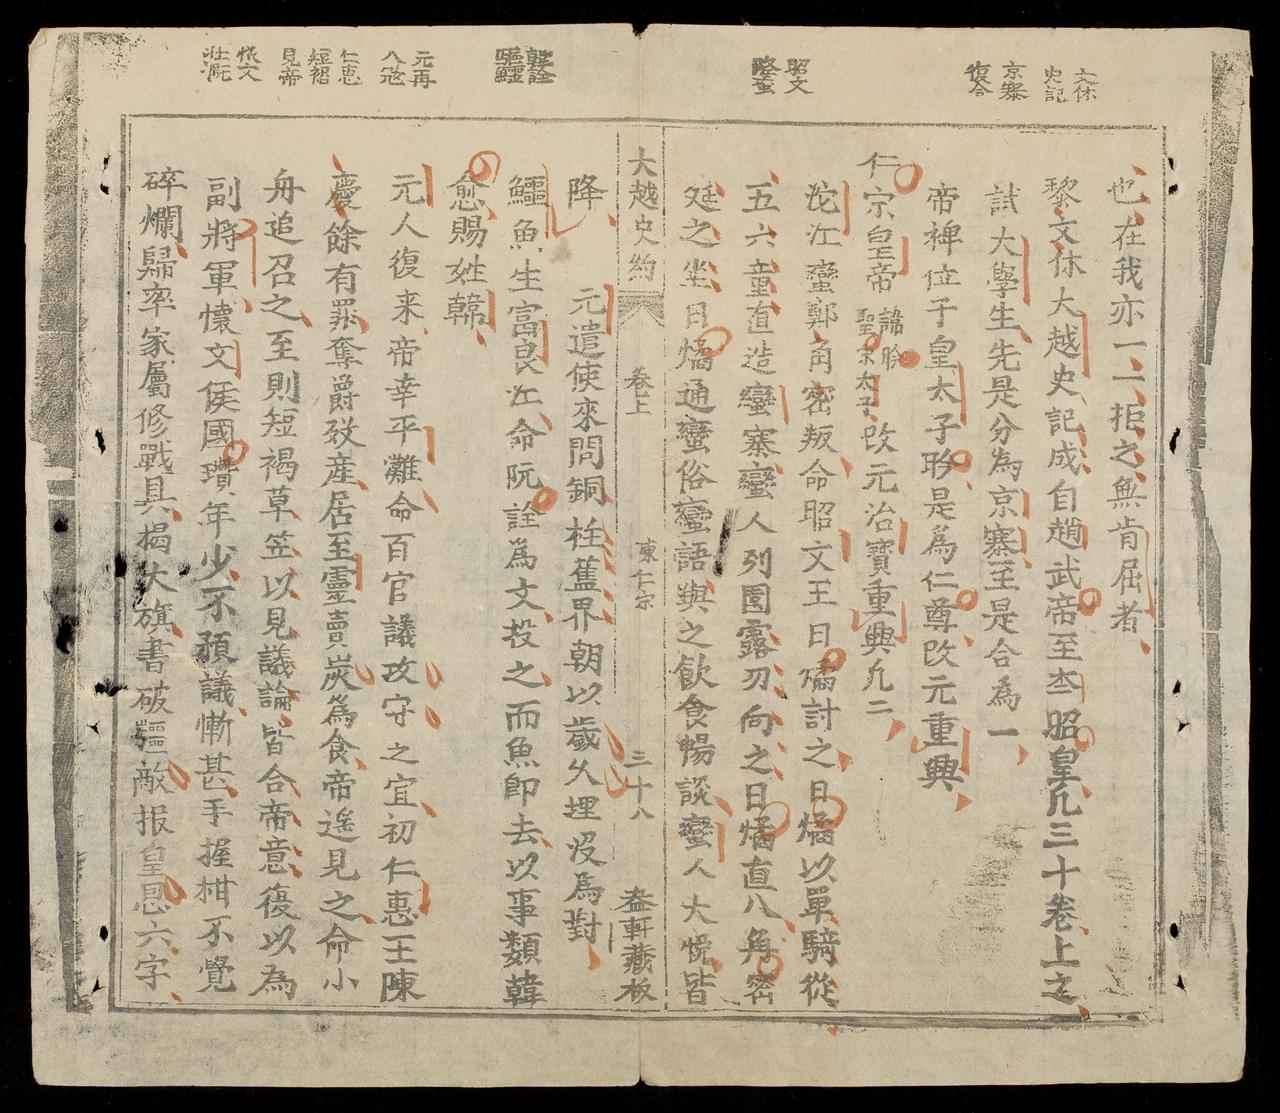 文休
史記
京寨
復合
昭文
降蠻
韓詮
驅鱷
元再
八寇
仁惠
短褐
見帝
懷文
壯慨
也在我亦一一拒之無肯屈者
黎文休大越史記成自趙武帝至李昭皇凡三十卷上之
試大學生先是分為京寨至是合為一
帝禅位于皇太子昑是爲仁尊改元重興
仁宗皇帝 諱昑聖宗太子 改元治寶重興凡二
沱江蠻鄭角密叛命昭文王日燏討之日燏以單騎從
五六童直造蠻寨蠻人列圍露刃向之日燏直入角密
廷之坐日燏通蠻俗蠻語與之飲食暢談蠻人大悅皆
大越史約 卷上 東仁宗 三十八 益軒藏板
降 元遣使來問銅柱舊界朝以歲久埋没為對
鱷魚生富良江命阮詮為文投之而魚即去以事類韓
愈賜姓韓
元人復来帝幸平灘命百官議攻守之宜初仁惠王陳
慶餘有罪奪爵效産居至靈賣炭為食帝遥見之命小
舟追召之至則短褐草笠以見議論皆合帝意復以為
副將軍懷文侯國瓚年少不預議慚甚手握柑不覺
碎爛歸率家屬修戰具揭大旗書破彊敵报皇恩六字